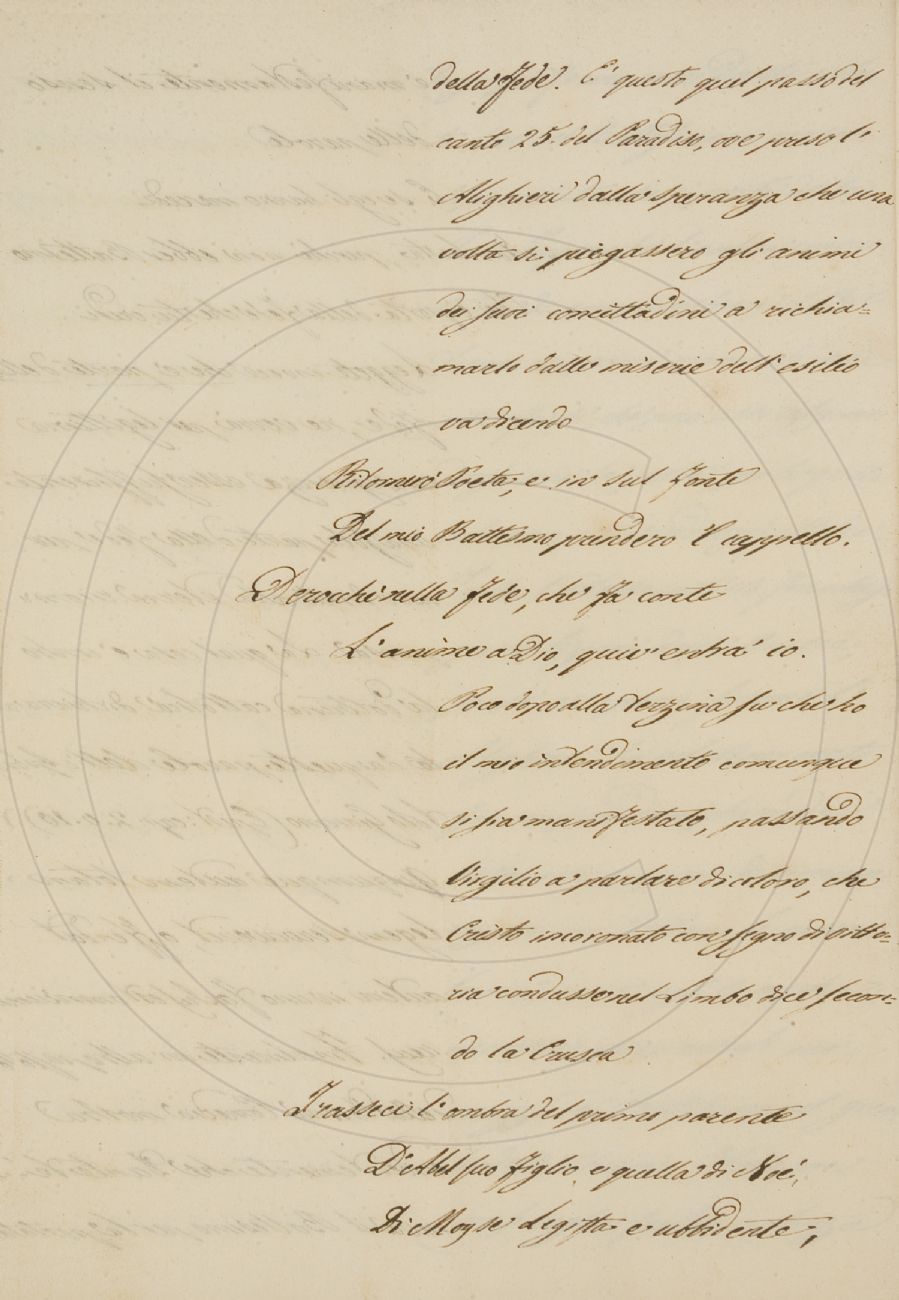 della Fede. E' questo quel passo del
canto 25. del Paradiso, ove preso l'
Alighieri dalla speranza che una
volta si piegassero gli animi
dei suoi concittadini a richia=
marlo dalle miserie dell'esilio
va dicendo
Ritornerò Poeta, e in sul fonte
Del mio Battesmo prenderò 'l cappello.
Perocchè nella Fede, che fa conte
L'anime a Dio, quiv' entra' io.
Poco dopo alla terzina su che ho
il mio intendimento comunque
si sia manifestato, passando
Virgilio a parlare di coloro, che
Cristo incoronato con segno di vitto=
ria condusse nel Limbo dice secon=
do la Crusca
Trasseci l'ombra del primo parente
D'Abel suo figlio, e quella di Noè,
Di Moysè Legista e ubbidente;